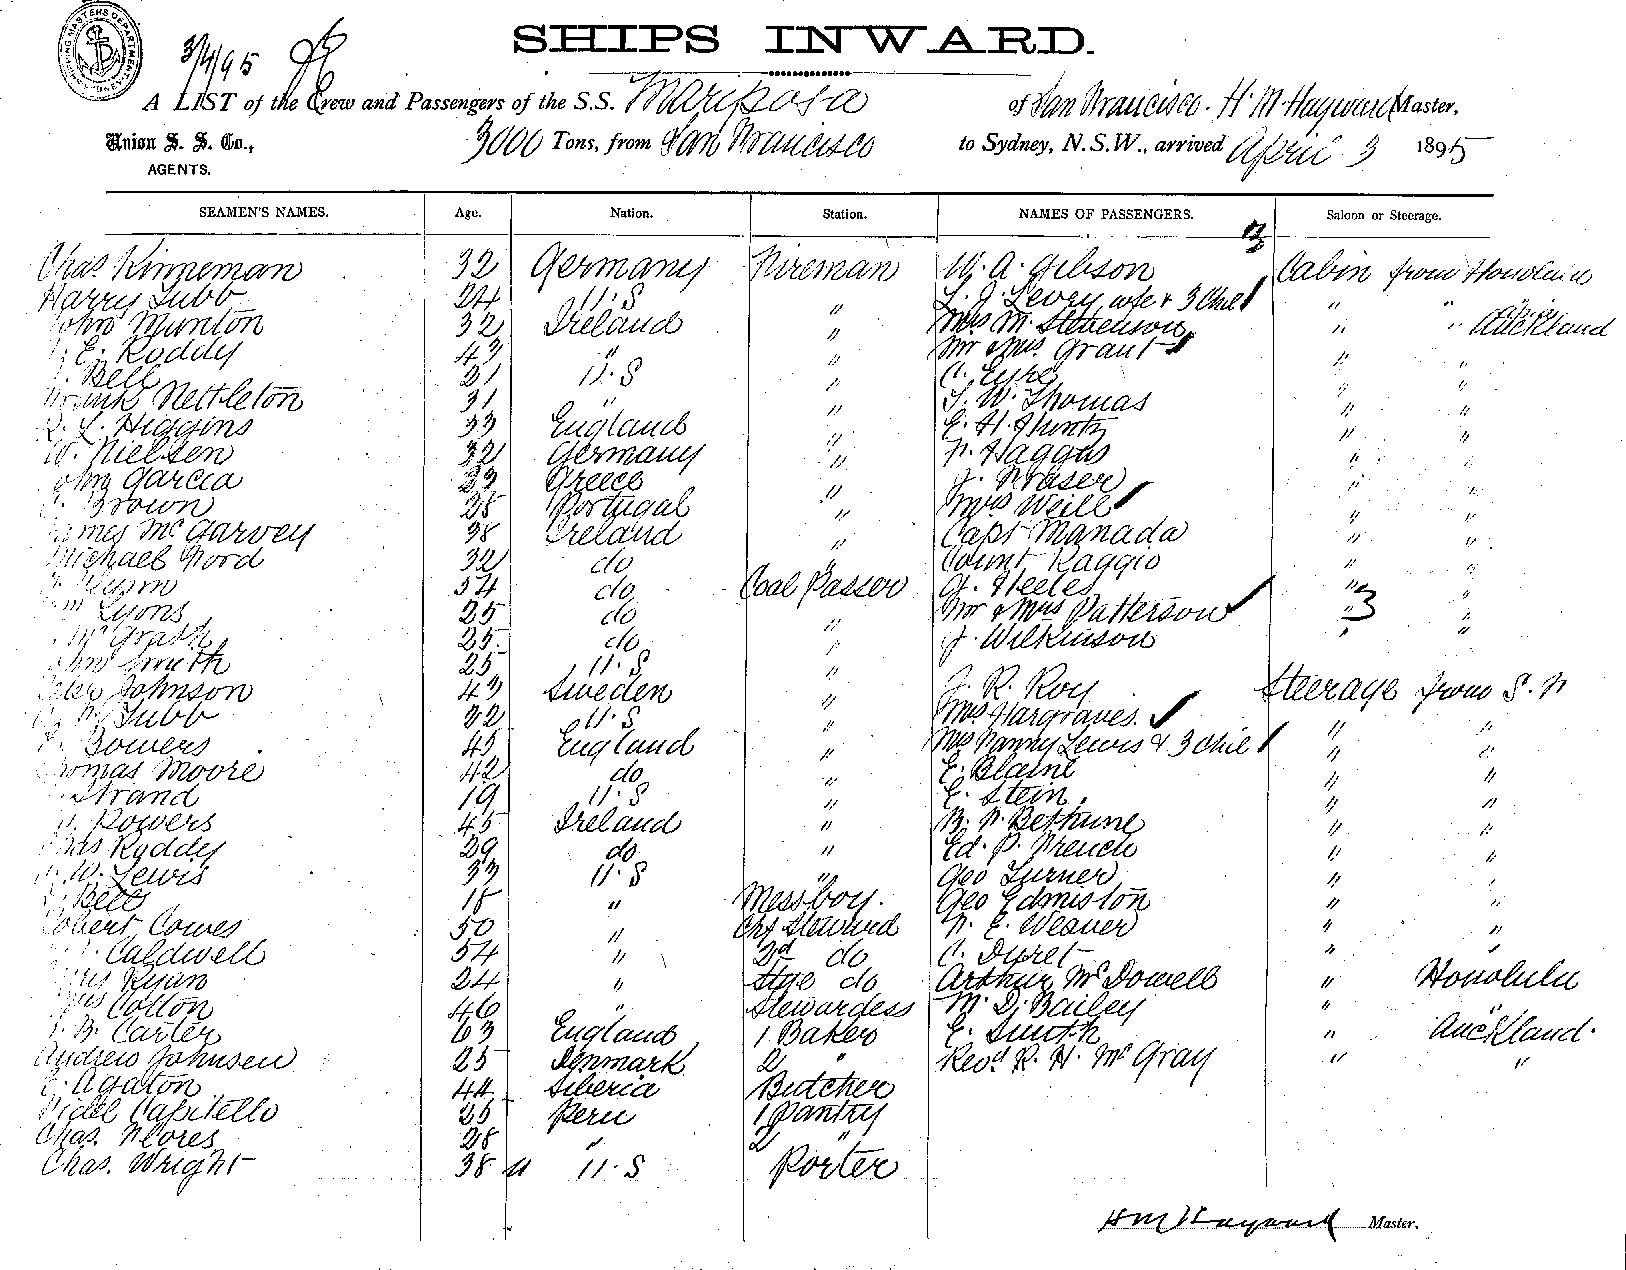 3/4/95
SHIPS INWARD.
A LIST of the Crew and Passengers of the S.S. Mariposa of San Francisco. H. M. Hayward Master,
Union S. S. Co., 3000 Tons, from San Francisco to Sydney, N.S.W., arrived April 3 1895
AGENTS.
SEAMEN'S NAMES. Age. Nation. Station. NAMES OF PASSENGERS. Saloon or Steerage.
Chas Kinneman 32 Germany Fireman W. A. Gibson Cabin from Honolulu
Harry Tubb 24 U.S " wife & 3 Chil " "
John Munton 32 Ireland " Mrs M. Stevenson " " Auckland
E. Roddy 43 " " Mr & Mrs. Grant " "
Bell 21 U.S " C. Eyre " "
Frank Nettleton 31 " " T. W. Thomas " "
Higgins 33 England " E. H. " "
W. Nielsen 32 Germany " Haggas " "
John Garcia 33 Greece " J. Fraser " "
Brown 28 Portugal " Mrs Weill " "
James McGarvey 38 Ireland " Capt Manada " "
Michael Ford 32 do " Count Raggio " "
54 do Coal Passer J. Steeles " "
Wm Lyons 25 do " Mr & Mrs Patterson " 3 "
McGrath 25 do " J. Wilkinson " "
John Smith 25 U.S "
Peter Johnson 43 Sweden " J. R. Roy Steerage from S. F
Tubb 22 U.S " Mrs Hargraves. " "
Bowers 45 England " Mrs Fanny Lewis & 3 Chil " "
Thomas Moore 42 do " E. Blaine " "
Strand 19 U.S " E. Stein " "
Powers 45 Ireland " Bethune " "
Chas Roddy 29 do " Ed. P. French " "
W. Lewis 33 U.S " Geo Turner " "
Bell 18 " Messboy. Geo Edmiston " "
Robert Cowes 50 " Chf Steward F. E. Weaver " "
Caldwell 54 " 2d do C. Duret " "
Ryan 24 " Stge do Arthur McDowell " Honolulu
Cotton 46 " Stewardess M. D. Bailey " "
B. Carter 63 England 1 Baker E. Smith " Auckland.
Andrew Johnsen 25 Denmark 2 " Revd R. H. McGray " "
E. Agaton 44 Siberia Butcher
Fidel Capitello 25 Peru 1 Pantry
Chas. Flores 28 " 2 "
Chas. Wright 38 U.S Porter
H M Hayward Master.